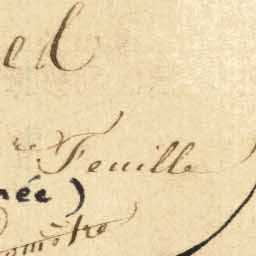 ed
re Feuille
née)
omètre